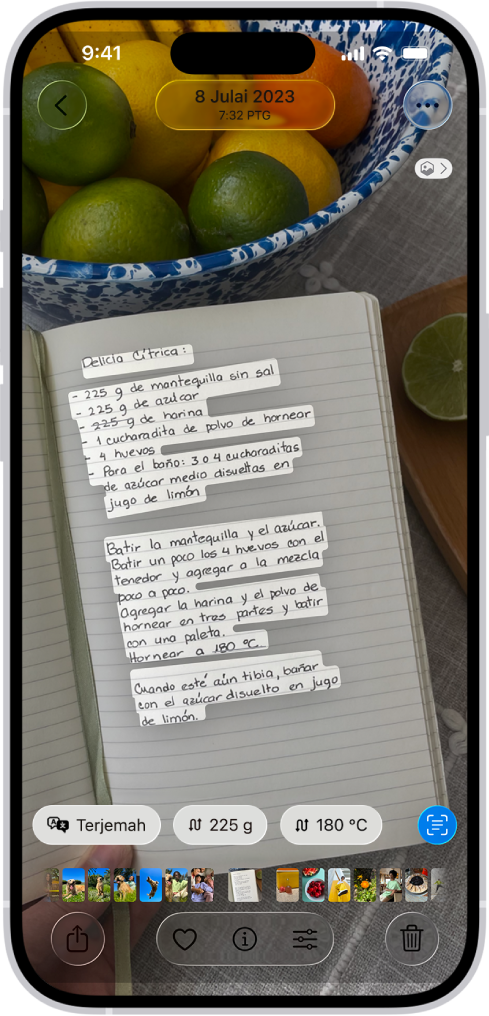 9:41
8 Julai 2023
7:32 PTG
Delicia Cítrica:
- 225 g de mantequilla sin sal
- 225 g de azúcar
- 225 g de harina
- 1 cucharadita de polvo de hornear
- 4 huevos
- Para el baño: 3 o 4 cucharaditas
de azúcar medio disueltas en
jugo de limón
Batir la mantequilla y el azúcar.
Batir un poco los 4 huevos con el
tenedor y agregar a la mezcla
poco a poco.
Agregar la harina y el polvo de
hornear en tres partes y batir
con una paleta.
Hornear a 180 °C.
Cuando esté aún tibia, bañar
con el azúcar disuelto en jugo
de limón.
Terjemah
225 g
180 °C